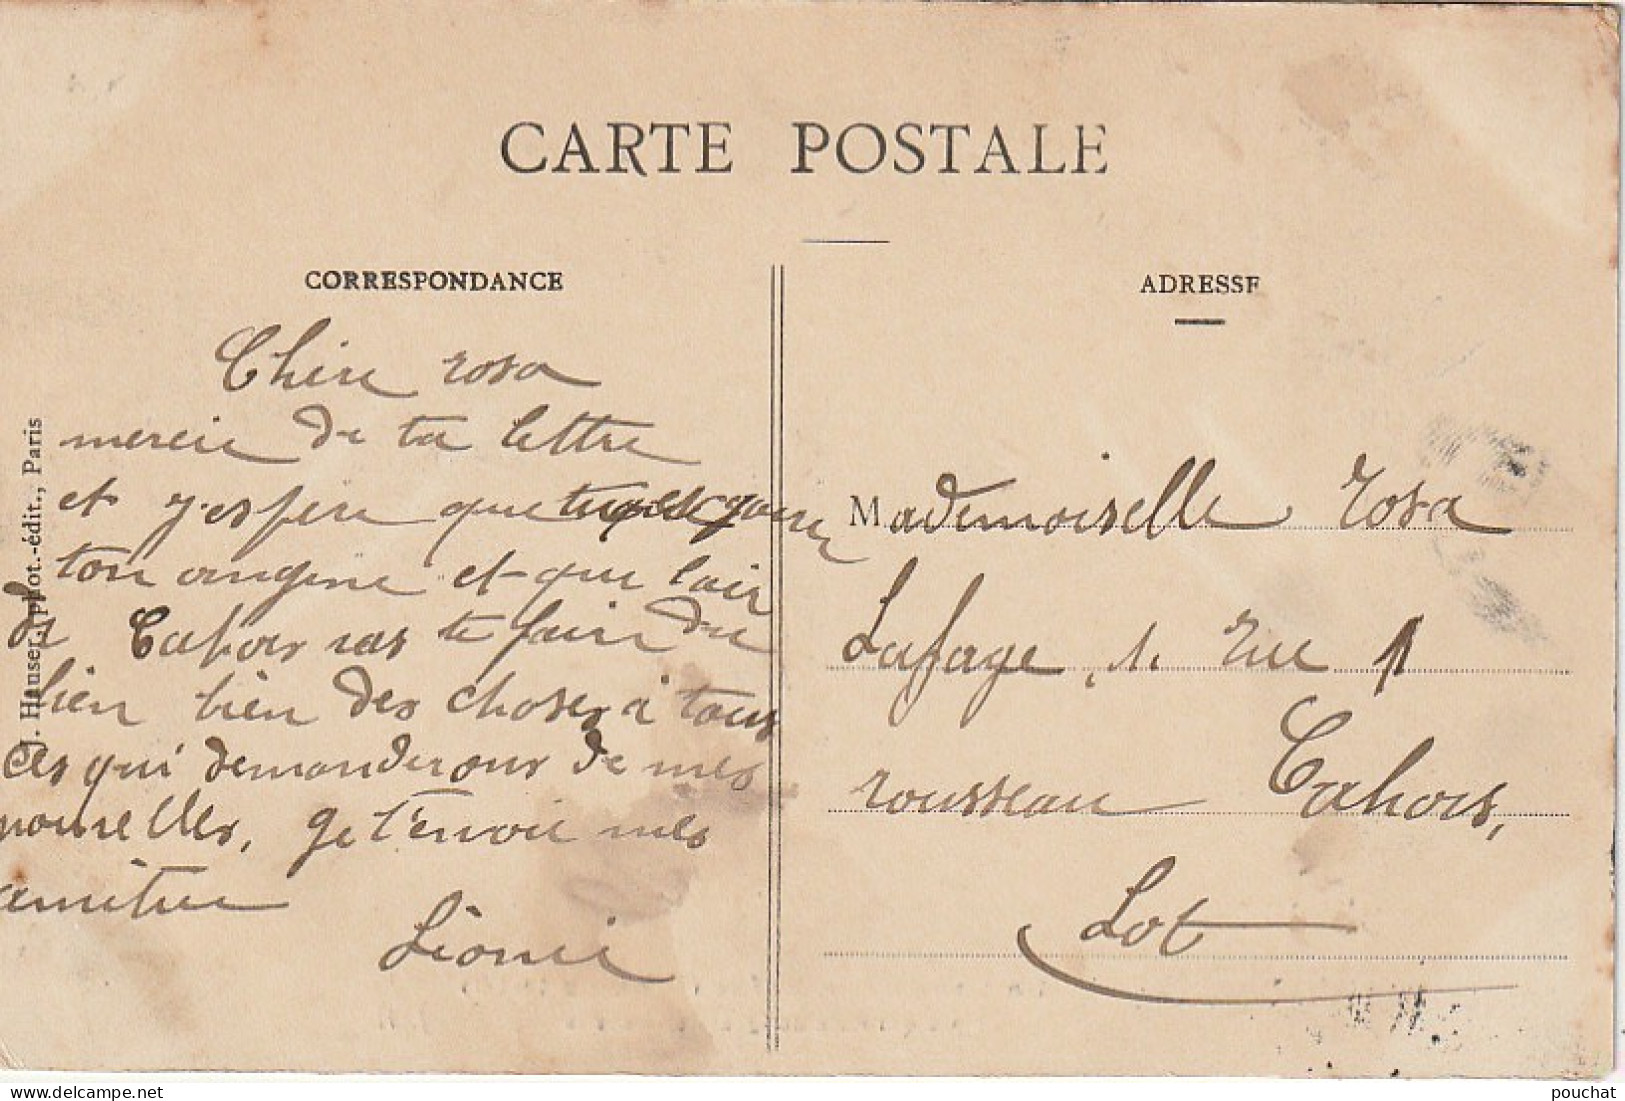 CARTE POSTALE
CORRESPONDANCE
Chere rosa
mercie de ta lettre
et j'espere que
ton angine et que lair
de Cahors ras te faire du
bien bien des choses à tous
ces qui demanderons de mes
nouvelles, Je t'envoie mes
amitiee
Léonie
J. Hauser, phot.-édit., Paris
ADRESSE
Mademoiselle Rosa
Lafage, 1. rue
rousseau Cahors,
Lot
delcampe.net
pouchat